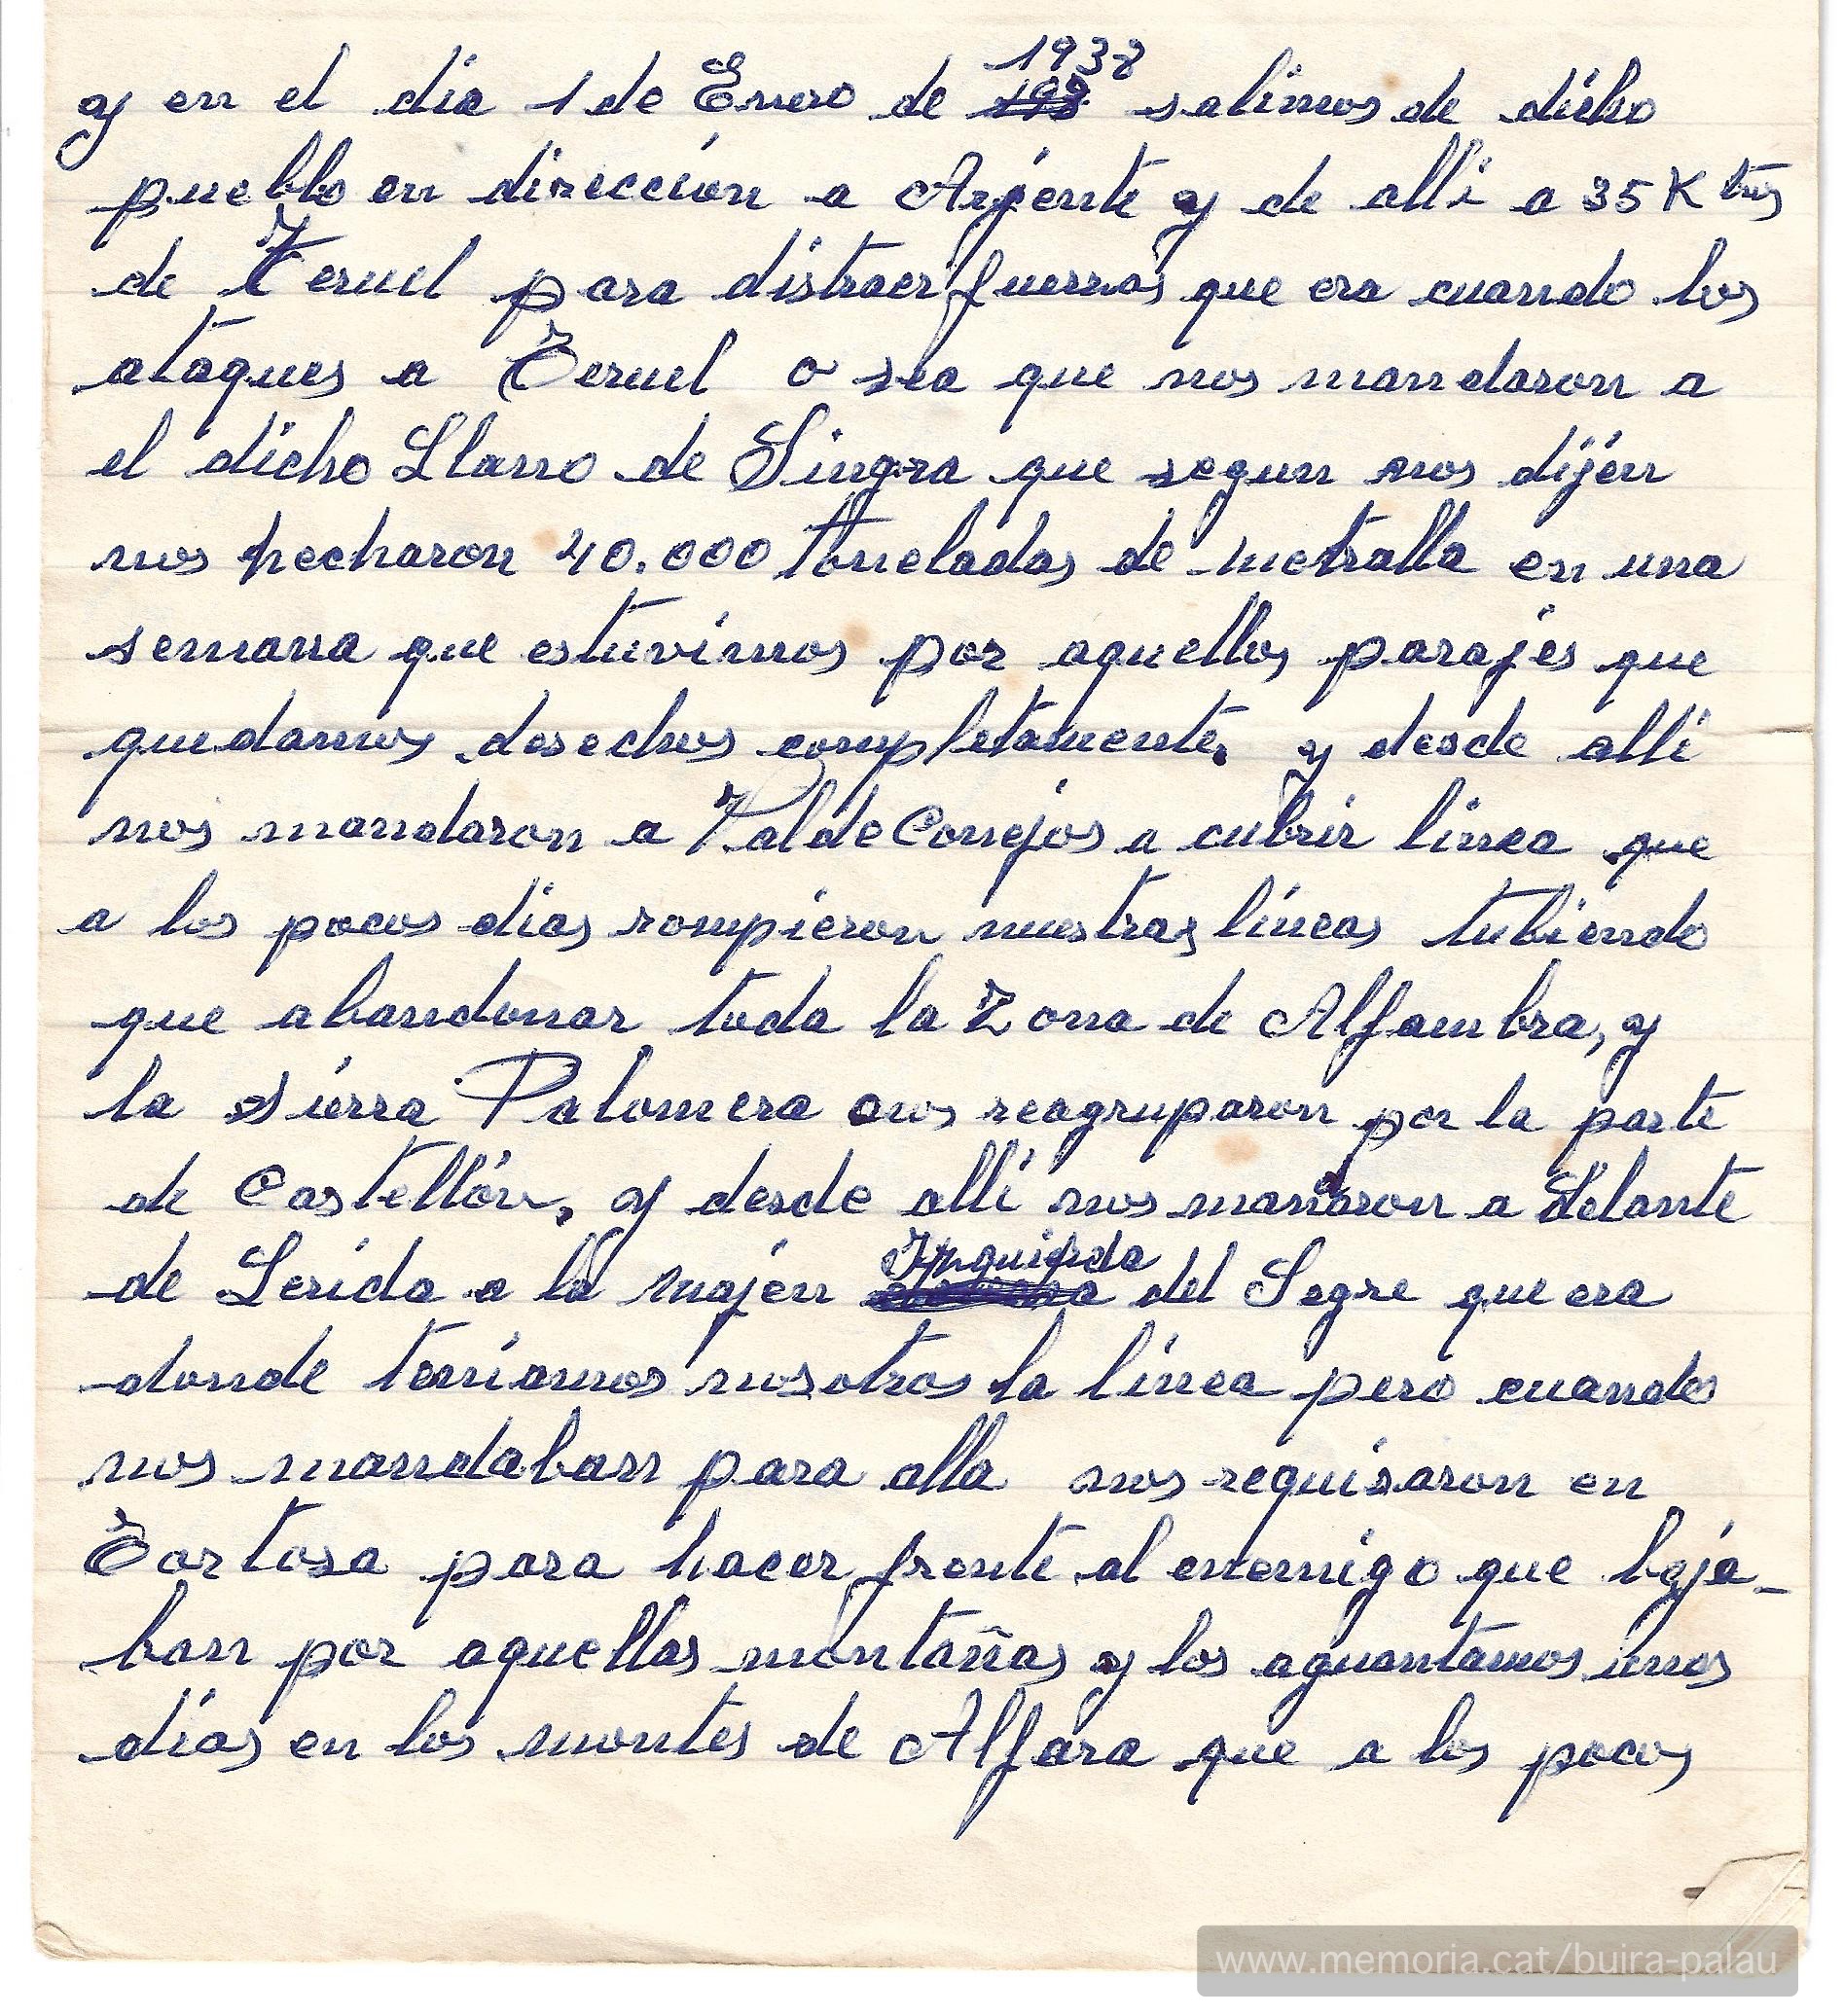 y en el dia 1 de Enero de 1938 salimos de dicho
pueblo en dirección a Argente y de alli a 35 K tros
de Teruel para distraer fuerzas que era cuando los
ataques a Teruel o sea que nos mandaron a
el dicho Llano de Singra que segun nos dijen
nos hecharon 40.000 Toneladas de metralla en una
semana que estuvimos por aquellos parajes que
quedamos desechos completamente, y desde alli
nos mandaron a Valde Conejos a cubrir linea que
a los pocos dias rompieron nuestras líneas tubiendo
que abandonar toda la Zona de Alfambra, y
la sierra Palomera nos reagruparon por la parte
de Castellón, y desde alli nos mandaron a delante
de Lerida a la majen Izquierda del Segre que era
donde teniamos nosotros la línea pero cuando
nos mandaban para alla nos requisaron en
Tortosa para hacer frente al enemigo que baja-
ban por aquellas montañas y los aguantamos unos
días en los montes de Alfara que a los pocos
www.memoria.cat/buira-palau